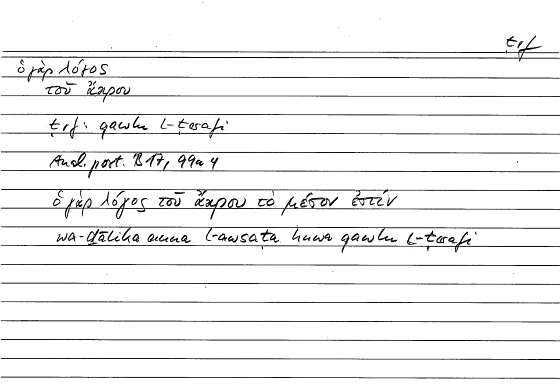 ṭrf
ὁ γὰρ λόγος
τοῦ ἄκρου
ṭrf: qawlu ṭ-ṭarafi
Anal. post. B 17, 99a4
ὁ γὰρ λόγος τοῦ ἄκρου τὸ μέσον ἐστίν
wa-ḏālika anna l-awsaṭa huwa qawlu ṭ-ṭarafi